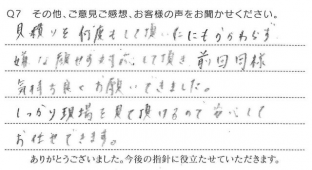 Q7 その他、ご意見ご感想、お客様の声をお聞かせください。
見積りを何度もして頂いたにもかかわらず
嫌な顔せず対応して頂き前回同様
気持ち良くお願いできました。
しっかり現場を見て頂けるので安心して
お任せできます。
ありがとうございました。今後の指針に役立たせていただきます。